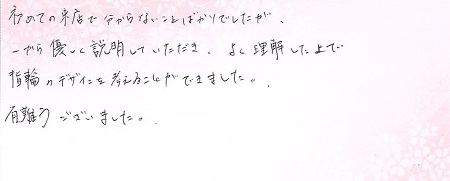 初めての来店で分からないことばかりでしたが、
一から優しく説明していただき、よく理解した上で
指輪のデザインを考えることができました。
有難うございました。